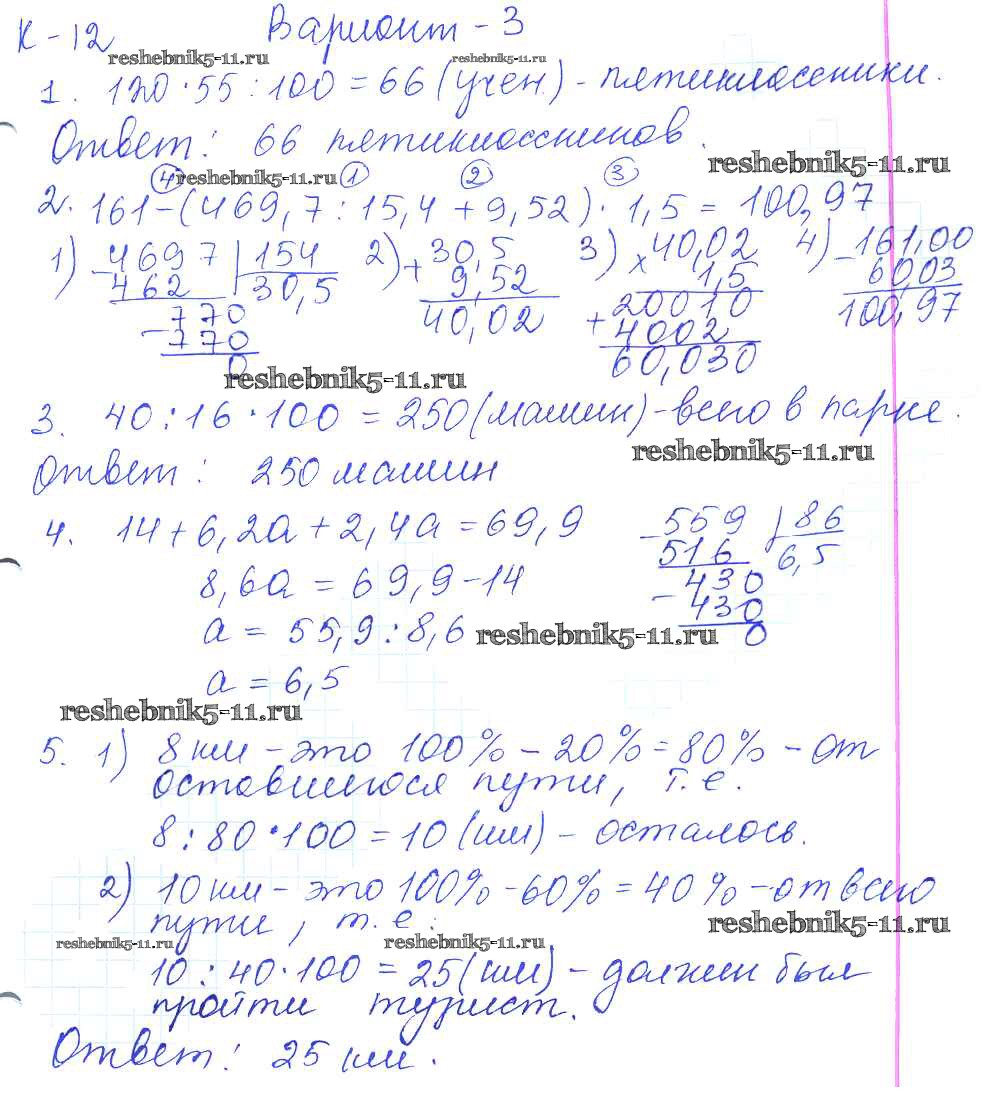 К-12 Вариант-3
reshebnik5-11.ru reshebnik5-11.ru
1. 120·55:100=66(учен.)- пятиклассники.
Ответ: 66 пятиклассников.
reshebnik5-11.ru
4 reshebnik5-11.ru 1 2 3
2. 161-(469,7:15,4+9,52)·1,5=100,97
1) 4697 | 154 2) 30,5 3) 40,02 4) 161,00
- 462 30,5 + 9,52 × 1,5 - 60,03
770 40,02 20010 100,97
- 770 + 4002
0 60,030
reshebnik5-11.ru
3. 40:16·100=250(машин)-всего в парке.
reshebnik5-11.ru
Ответ: 250 машин
4. 14+6,2а+2,4а=69,9 - 559 | 86
516 6,5
8,6а=69,9-14 430
- 430
а=55,9:8,6 reshebnik5-11.ru 0
а=6,5
reshebnik5-11.ru
5. 1) 8 км - это 100%-20%=80% - от
оставшегося пути, т.е.
8:80·100=10(км)- осталось.
2) 10 км - это 100%-60%=40% - от всего
пути, т.е. reshebnik5-11.ru
reshebnik5-11.ru reshebnik5-11.ru
10:40·100=25(км) - должен был
пройти турист.
Ответ: 25 км.